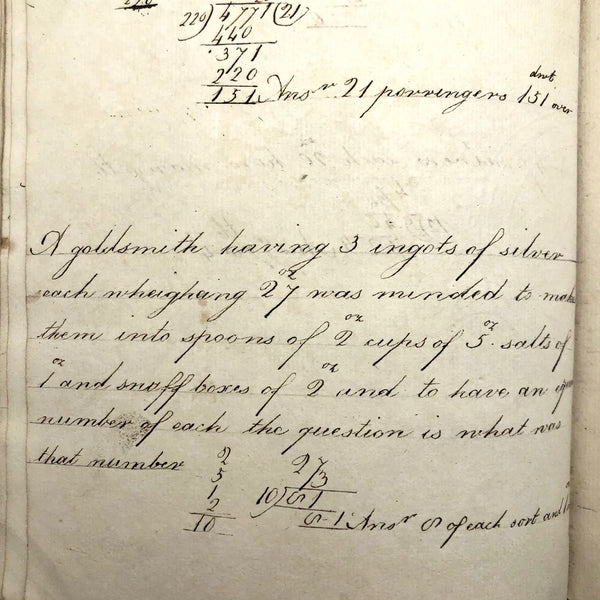 220)4771(21
440
371
220
151 Ansr 21 porringers 151 dwt over
A goldsmith having 3 ingots of silver
each wheighang 27 oz was minded to make
them into spoons of 2 oz cups of 5 oz salts of
1 oz and snuff boxes of 2 oz and to have an
number of each the question is what was
that number
2
5
1
2
10
27
3
10)81
8-1 Ansr 8 of each sort and 1